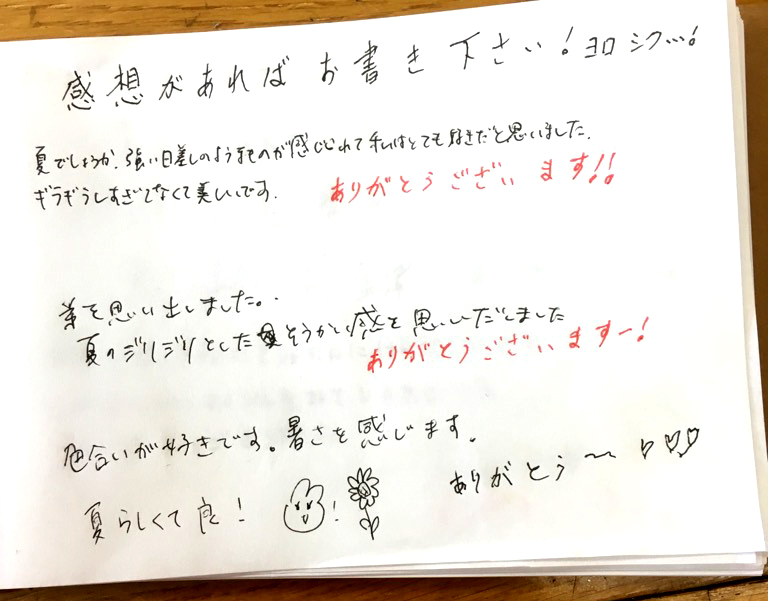 感想があればお書き下さい！ヨロシク…！
夏でしょうか、強い日差しのようなものが感じられて私はとても好きだと思いました．
ギラギラしすぎてなくて美しいです．
ありがとうございます!!
弟を思い出しました。
夏のジリジリとしたそうかい感を思いだしました
ありがとうございますー！
色合いが好きです。暑さを感じます。
夏らしくて良！
！
ありがとう〜